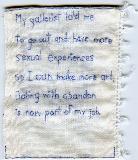 My gallerist told me
to go out and have more
sexual experiences
so I can make more art.
Doing with abandon
is now part of my job